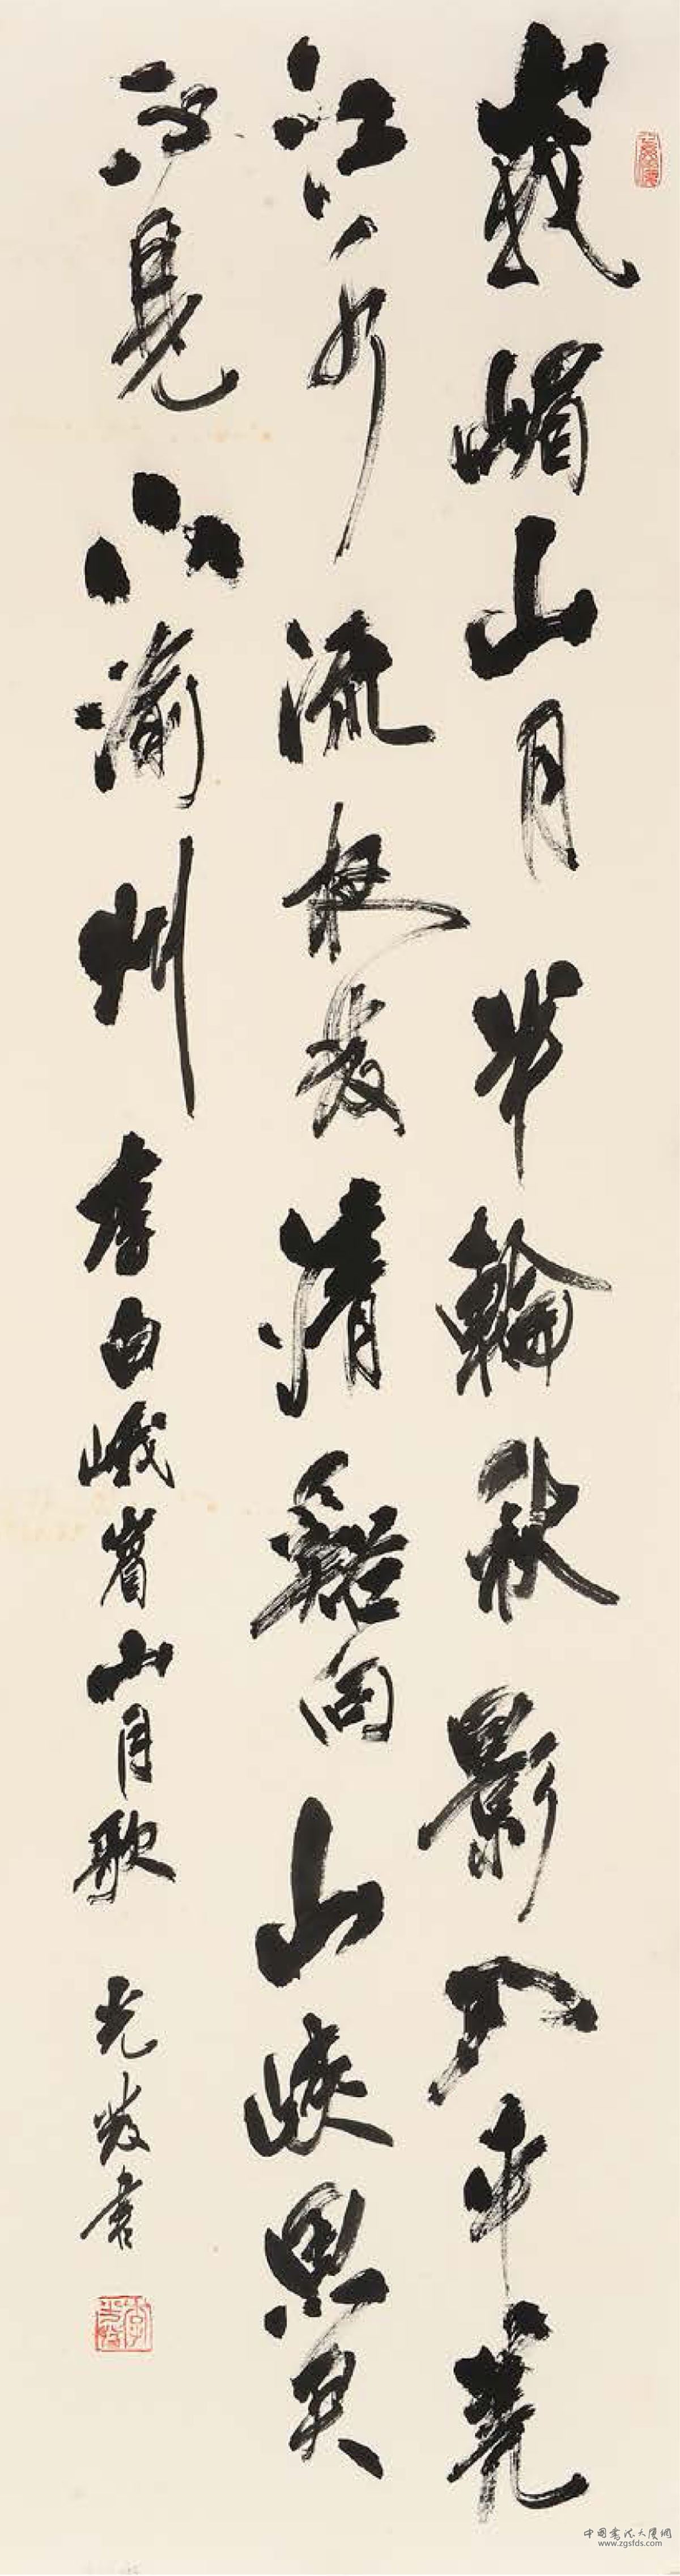 峩嵋山月半輪秋影入平羌
江水流夜發清谿向山峽思君
不見下渝州 李白峨嵋山月歌 光發書
中国書法大廈網
www.zgsfds.com